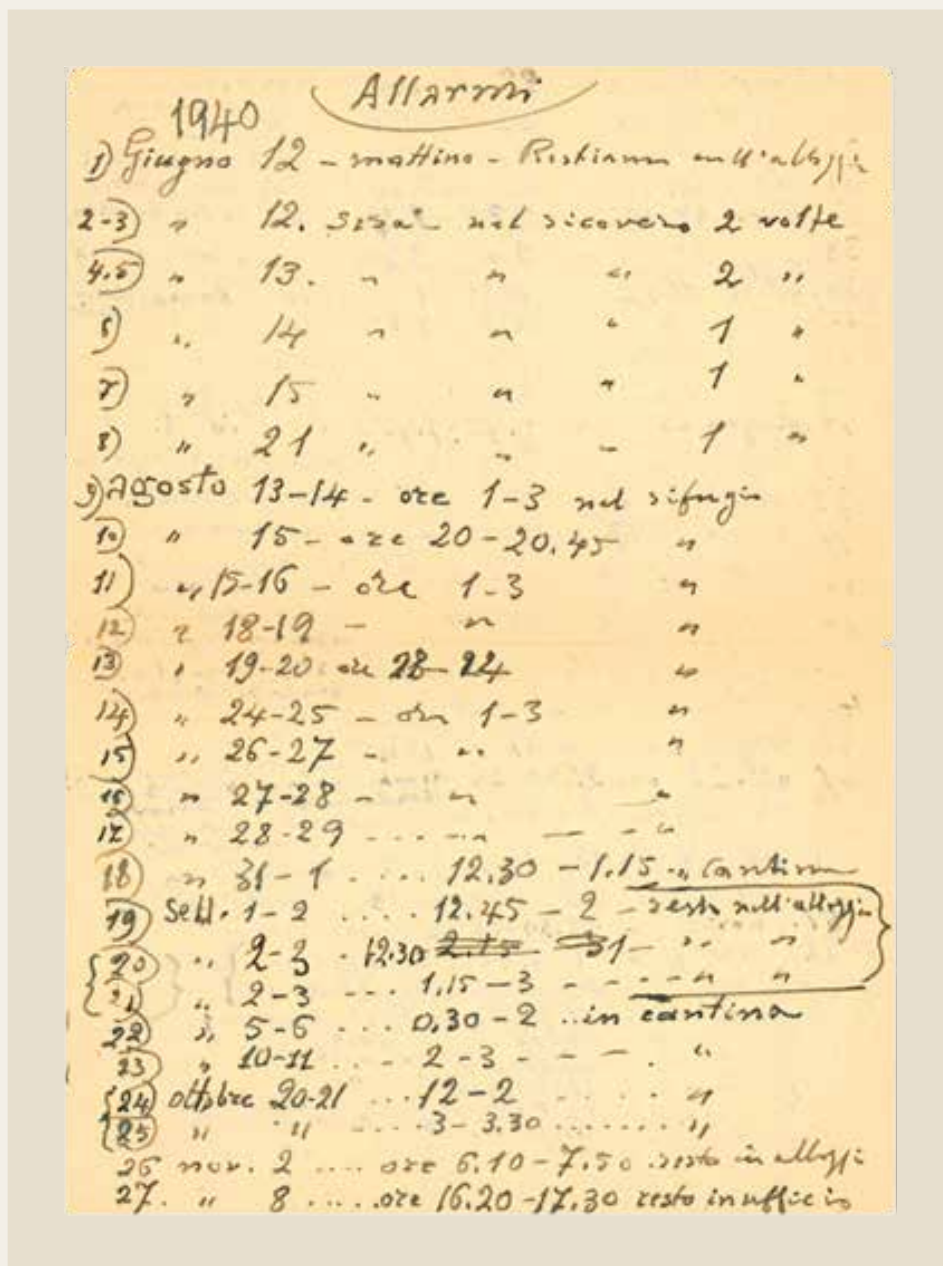 Allarmi
1940
1) Giugno 12 - mattino - Restiamo nell'alloggio
2-3) " 12. sera nel ricovero 2 volte
4.5) " 13. " " " 2 "
6) " 14 " " " 1 "
7) " 15 " " " 1 "
8) " 21 " " " 1 "
9) Agosto 13-14 - ore 1-3 nel rifugio
10) " 15 - ore 20-20.45 "
11) " 15-16 - ore 1-3 "
12) " 18-19 - " "
13) " 19-20 ore "
14) " 24-25 - ore 1-3 "
15) " 26-27 - " "
16) " 27-28 - " "
17) " 28-29 .... " - - "
18) " 31-1 .... 12.30 - 1.15 " cantina
19) Sett. 1-2 .... 12.45 - 2 - resto nell'alloggio
20) " 2-3 - 12.30 1 - " "
21) " 2-3 ... 1,15-3 - - - - " "
22) " 5-6 ... 0,30-2 .. in cantina
23) " 10-11 ... - 2-3 - - - . "
24) ottobre 20-21 ... 12-2 ..... "
25) " " ... 3-3.30 ....... "
26 nov. 2 .... ore 6.10-7.50 resto in alloggio
27. " 8 ..... ore 16.20-17.30 resto in ufficio